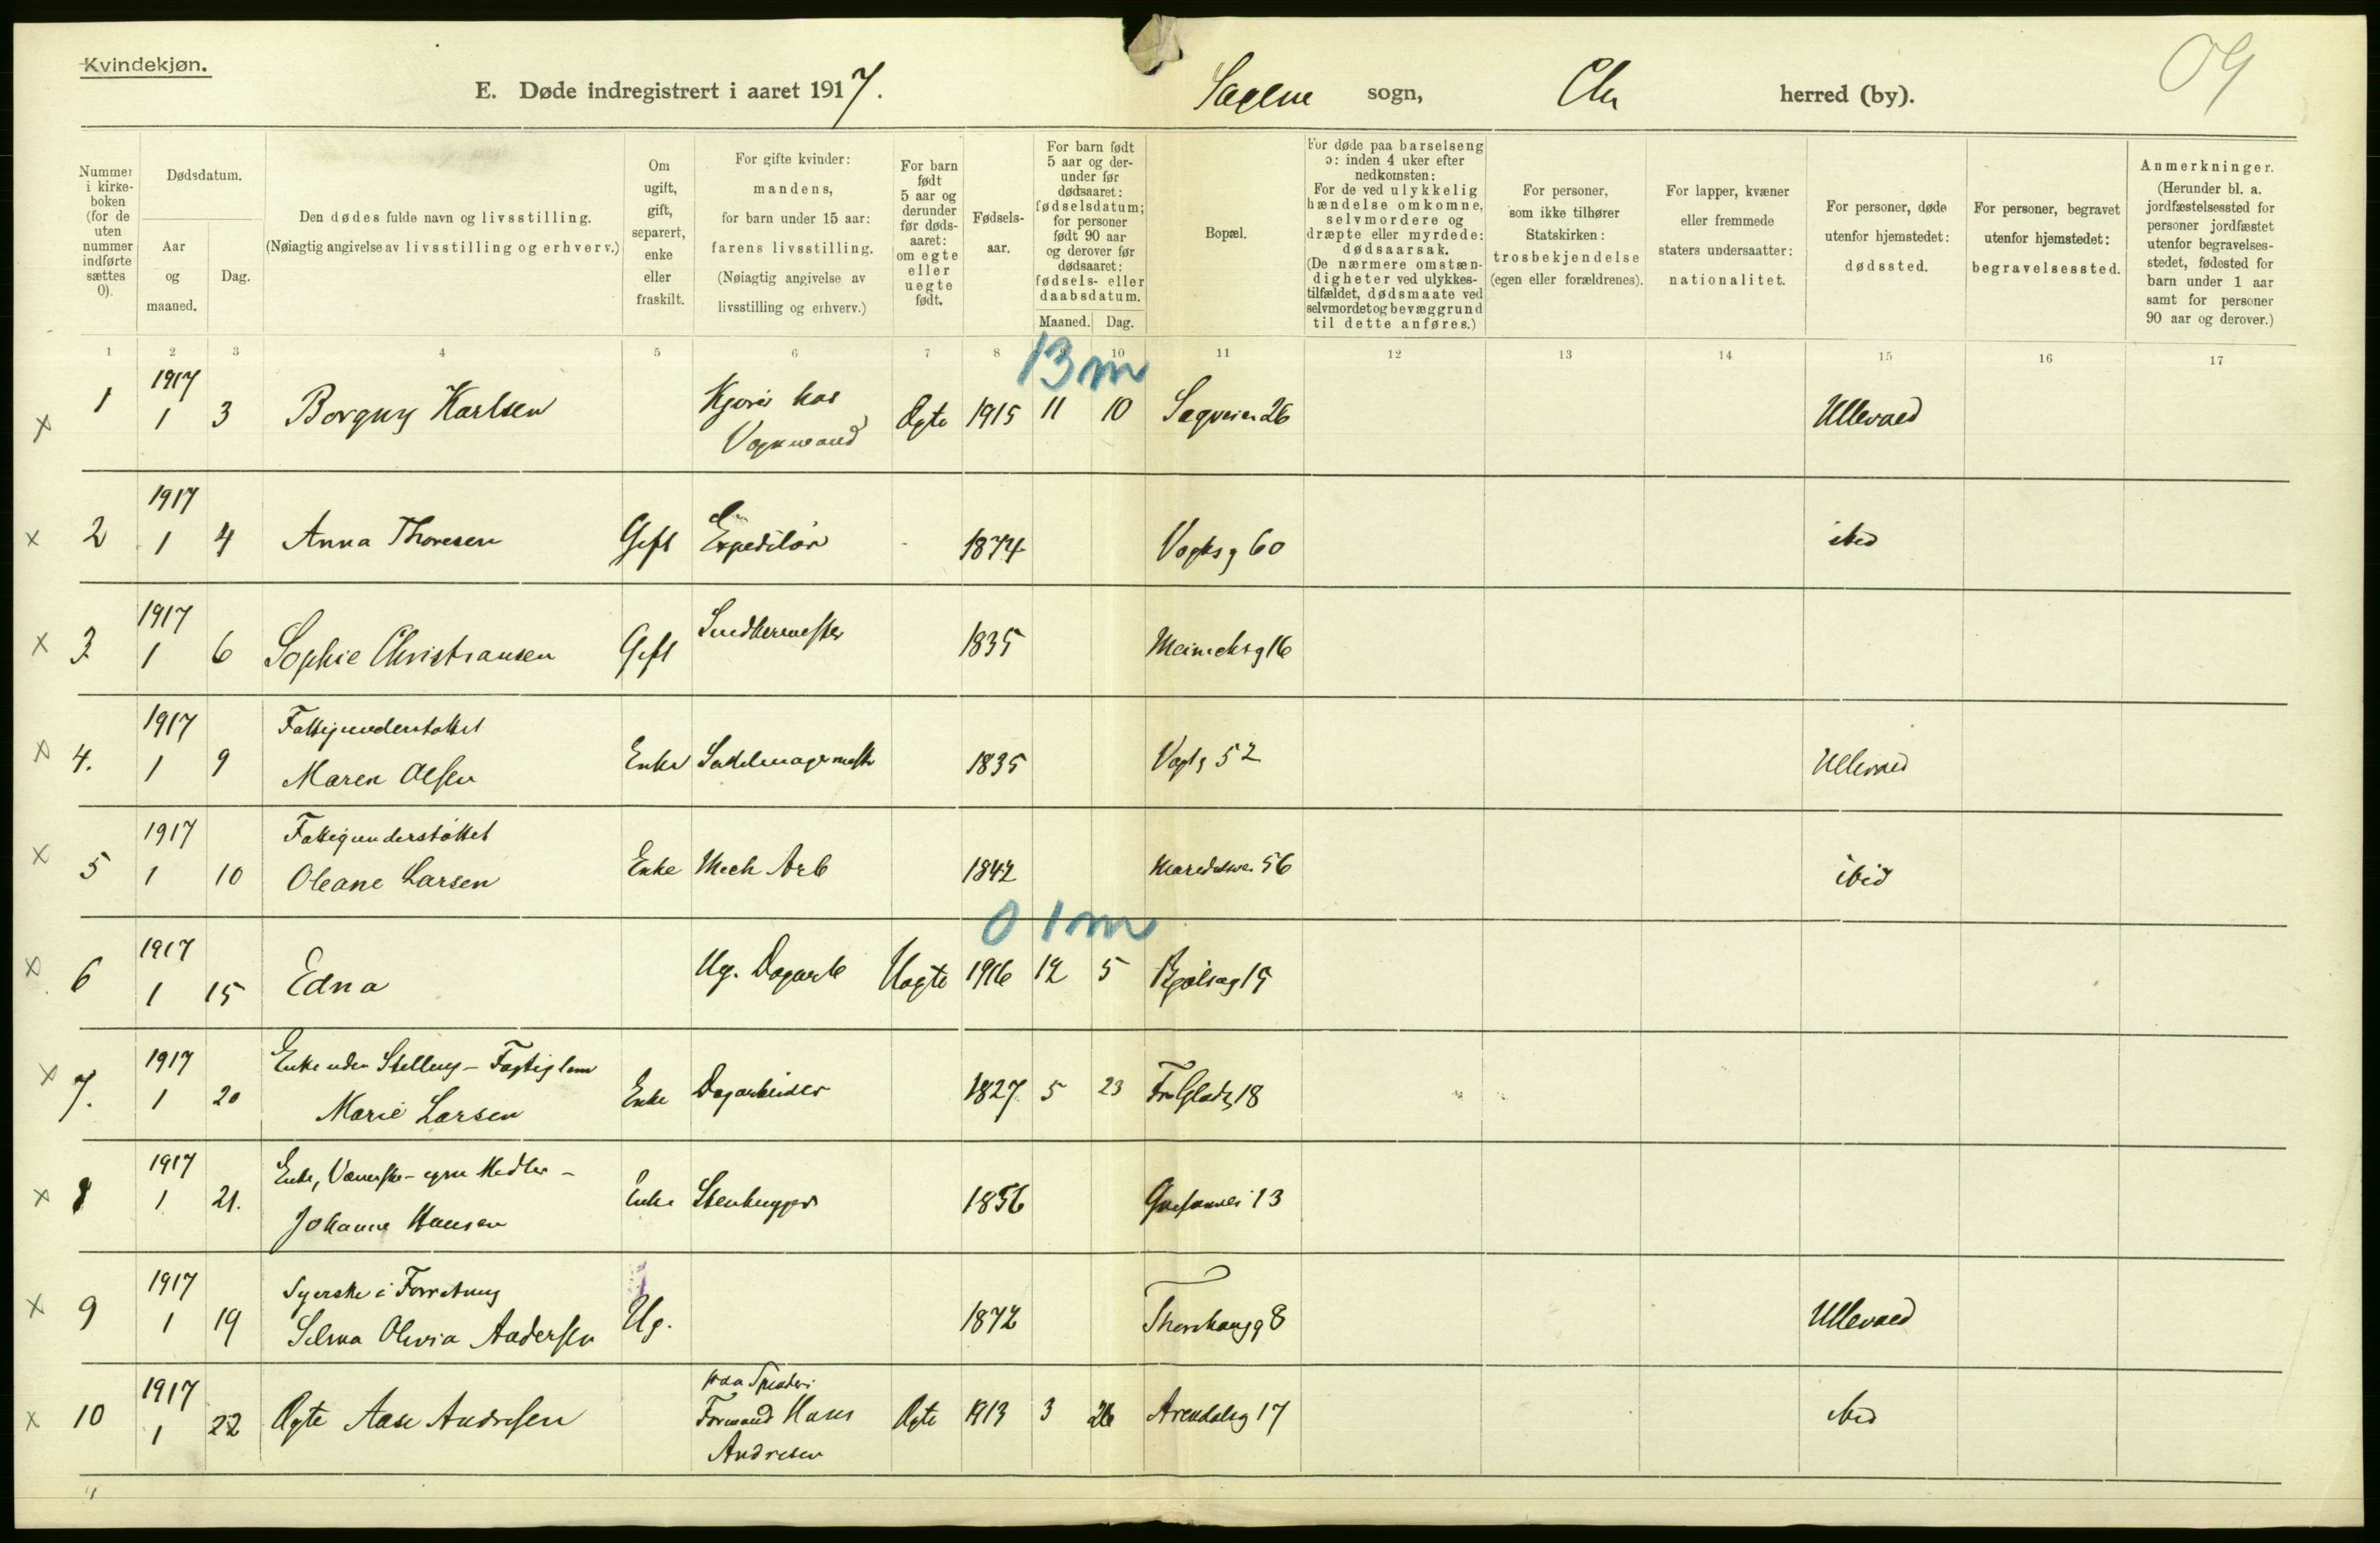 Kvindekjøn.
E. Døde indregistrert i aaret 1917. Sagene sogn, Chr herred (by). 04
Nummer i kirkeboken (for de uten nummer indførte sættes 0).
Dødsdatum.
Aar og maaned.
Dag.
Den dødes fulde navn og livsstilling.
(Nøiagtig angivelse av livsstilling og erhverv.)
Om ugift, gift, separert, enke eller fraskilt.
For gifte kvinder: mandens, for barn under 15 aar: farens livsstilling.
(Nøiagtig angivelse av livsstilling og erhverv.)
For barn født 5 aar og derunder før dødsaaret: om egte eller uegte født.
Fødselsaar.
For barn født 5 aar og derunder før dødsaaret: fødselsdatum; for personer født 90 aar og derover før dødsaaret: fødsels- eller daabsdatum.
Maaned. Dag.
Bopæl.
For døde paa barselseng ɔ: inden 4 uker efter nedkomsten:
For de ved ulykkelig hændelse omkomne, selvmordere og dræpte eller myrdede: dødsaarsak.
(De nærmere omstændigheter ved ulykkestilfældet, dødsmaate ved selvmordet og bevæggrund til dette anføres.)
For personer, som ikke tilhører Statskirken: trosbekjendelse (egen eller forældrenes).
For lapper, kvæner eller fremmede staters undersaatter: nationalitet.
For personer, døde utenfor hjemstedet: dødssted.
For personer, begravet utenfor hjemstedet: begravelsessted.
Anmerkninger.
(Herunder bl. a. jordfæstelsessted for personer jordfæstet utenfor begravelsesstedet, fødested for barn under 1 aar samt for personer 90 aar og derover.)
1 2 3 4 5 6 7 8 9 10 11 12 13 14 15 16 17
13 m
x 1 1917 1 3 Borgny Karlsen Kjører hos Vognmand Ægte 1915 11 10 Sagveien 26 Ullevaal
x 2 1917 1 4 Anna Thoresen Gift Expeditør 1874 Vogtsg 60 ibid
x 3 1917 1 6 Sophie Christiansen Gift Snedkermester 1835 16
x 4. 1917 1 9 Fattigunderstøttet
Maren Olsen Enke Sadelmagermestr 1835 Vogtg 52 Ullevaal
x 5 1917 1 10 Fattigunderstøttet
Oleane Larsen Enke Mech Arb 1842 Maridalsvei 56 ibid
0 1 m
x 6 1917 1 15 Edna Ug. Dagarb Uægte 1916 12 5 Bjølseng 15
x 7. 1917 1 20 Enke uden Stilling - Fattiglem
Marie Larsen Enke Dagarbeider 1827 5 23 18
x 8 1917 1 21. Enke, Væverske - egne Midler -
Johanne Hansen Enke Stenhugger 1856 Grefsenvei 13
x 9 1917 1 19 Syerske i Forretning
Selma Olivia Andersen Ug. 1872 Thorshaugg 8 Ullevaal
x 10 1917 1 22 Ægte Aase Andresen paa Spinderi
Formand Hans
Andresen Ægte 1913 3 26 Arendalsg 17 ibid